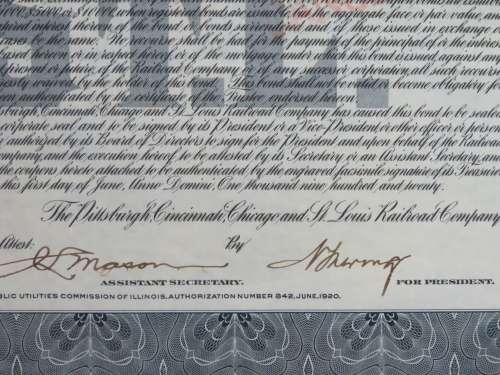 $1,000, $5,000 or $10,000 Each or registered bonds are issuable, but the aggregate face or par value, and
interest thereon, of the bonds surrendered and of those issued in exchange
cases be the same. No recourse shall be had for the payment of the principal of or the interest
based thereon or in respect hereof or of the mortgage by which this bond is issued, against
present or future, of the Railroad Company or of any successor corporation, all such recourse
expressly waived by the holder of this bond. This bond shall not be valid or become obligatory for
been authenticated by the certificate of the Trustee endorsed hereon.
Pittsburgh, Cincinnati, Chicago and St. Louis Railroad Company has caused this bond to be sealed
corporate seal and to be signed by its President or a Vice-President or other officer or person
authorized by its Board of Directors to sign for the President and upon behalf of the Railroad
Company, and the execution hereof to be attested by its Secretary or an Assistant Secretary, and
the coupons hereto attached to be authenticated by the engraved facsimile signature of its Treasurer
this first day of June, Anno Domini, One thousand nine hundred and twenty.
The Pittsburgh, Cincinnati, Chicago and St. Louis Railroad Company
Attest: By
S Mason
ASSISTANT SECRETARY. FOR PRESIDENT.
BLIC UTILITIES COMMISSION OF ILLINOIS, AUTHORIZATION NUMBER 842, JUNE, 1920.